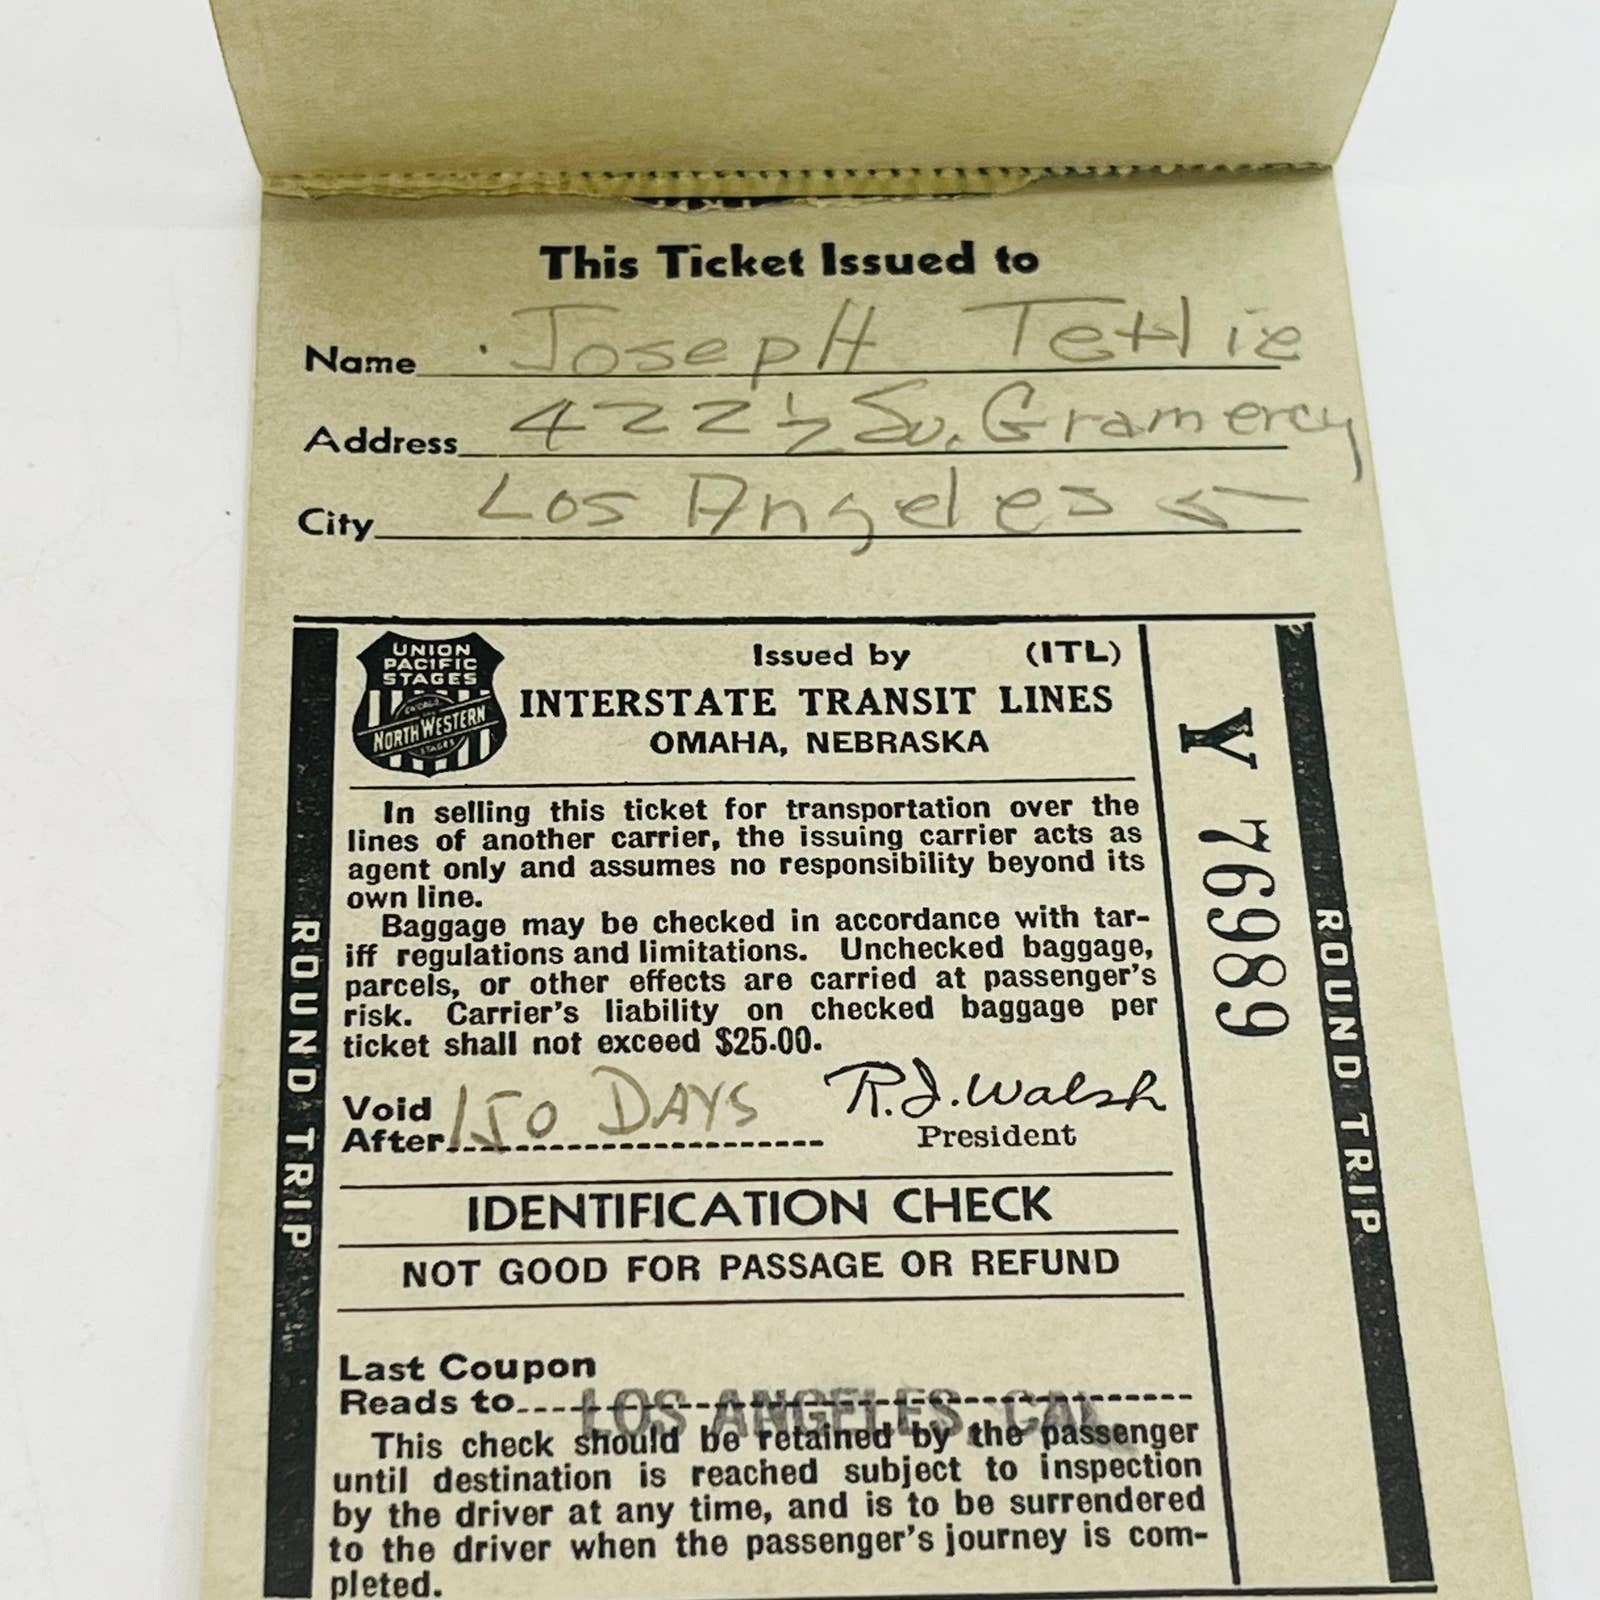 This Ticket Issued to
Name Joseph Tetlie
Address 422 1/2 So. Gramercy
City Los Angeles 5
UNION
PACIFIC
STAGES
CHICAGO
AND
NORTH WESTERN
STAGES
Issued by (ITL)
INTERSTATE TRANSIT LINES
OMAHA, NEBRASKA
In selling this ticket for transportation over the
lines of another carrier, the issuing carrier acts as
agent only and assumes no responsibility beyond its
own line.
Baggage may be checked in accordance with tar-
iff regulations and limitations. Unchecked baggage,
parcels, or other effects are carried at passenger's
risk. Carrier's liability on checked baggage per
ticket shall not exceed $25.00.
Void
After 150 DAYS
R. J. Walsh
President
IDENTIFICATION CHECK
NOT GOOD FOR PASSAGE OR REFUND
Last Coupon
Reads to LOS ANGELES, CAL
This check should be retained by the passenger
until destination is reached subject to inspection
by the driver at any time, and is to be surrendered
to the driver when the passenger's journey is com-
pleted.
ROUND TRIP
Y 76989
ROUND TRIP